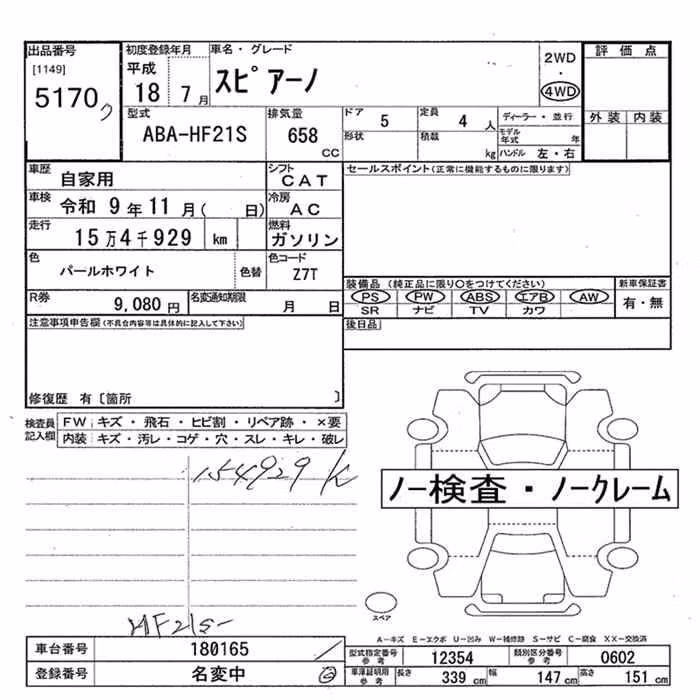 出品番号 初度登録年月 車名・グレード 2WD 評価点
[1149] 平成 スピアーノ ・
5170 18 7月 4WD
型式 排気量 ドア 5 定員 4人 ディーラー・並行 外装 内装
ABA-HF21S 658 CC 形状 積載 kg モデル年式 年
ハンドル 左・右
車歴 自家用 シフト CAT セールスポイント(正常に機能するものに限ります)
車検 令和 9年11月( 日) 冷房 AC
走行 15万4千929 km 燃料 ガソリン
色 パールホワイト 色替 色コード Z7T
装備品(純正品に限り○をつけてください) 新車保証書
R券 9,080円 名変通知期限 月 日 PS PW ABS エアB AW 有・無
SR ナビ TV カワ
注意事項申告欄(不具合内容等は具体的に記入して下さい) 後日品
修復歴 有〔箇所 〕
検査員記入欄 FW キズ・飛石・ヒビ割・リペア跡・×要
内装 キズ・汚レ・コゲ・穴・スレ・キレ・破レ
154929 K
ノー検査・ノークレーム
スペア
HF21S-
A-キズ E-エクボ U-凹み W-補修跡 S-サビ C-腐食 XX-交換済
車台番号 180165 型式指定番号 参考 12354 類別区分番号 参考 0602
登録番号 名変中 車庫証明用 参考 長さ 339 cm 幅 147 cm 高さ 151 cm